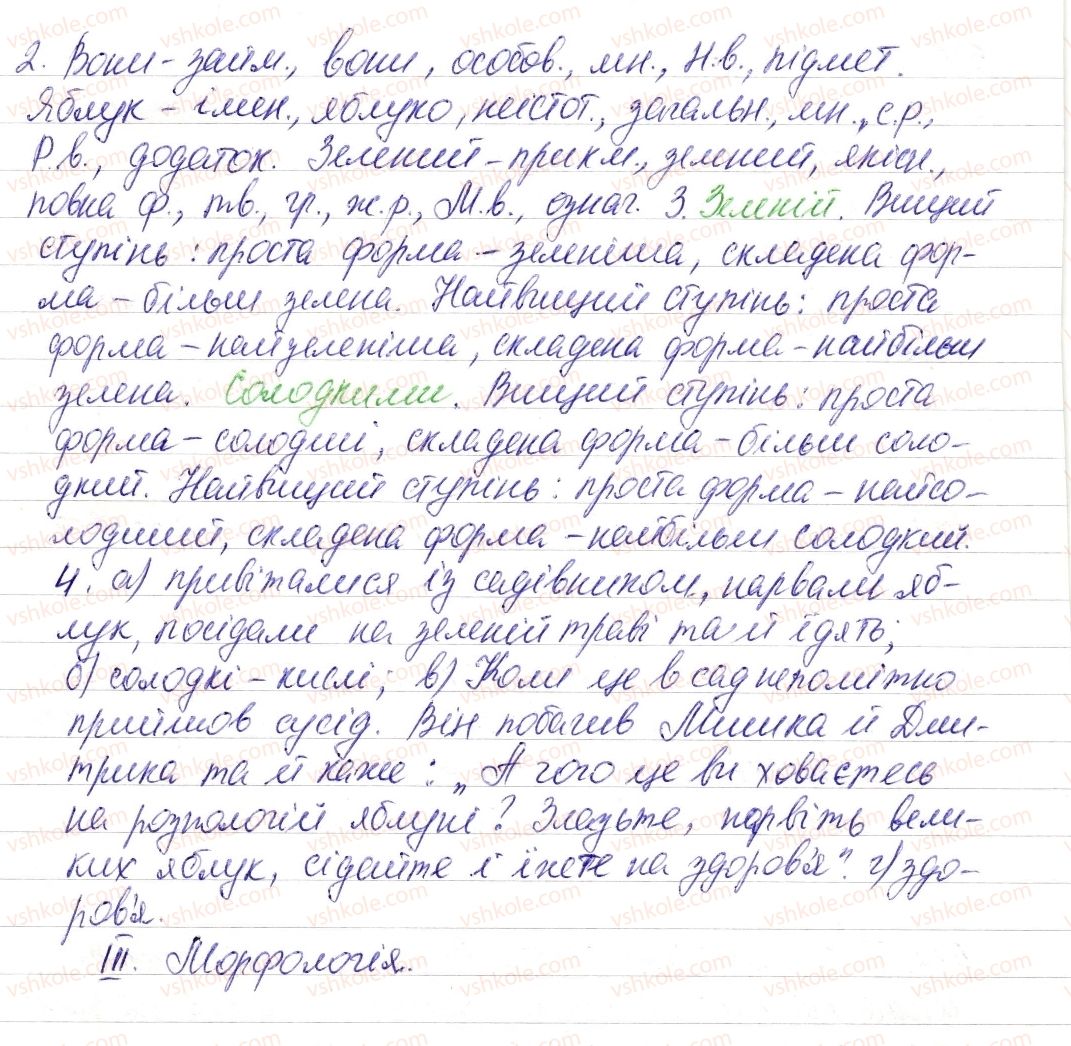 2. Вони - займ., вони, особов., мн., Н.в., підмет.
Яблук - імен., яблуко, неістот., загальн., мн., с.р.,
Р.в., додаток. Зелений - прикм., зелений, якісн.,
повна ф., тв., гр., ж.р., М.в., означ. 3. Зеленій. Вищий
ступінь: проста форма - зеленіша, складена фор-
ма - більш зелена. Найвищий ступінь: проста
форма - найзеленіша, складена форма - найбільш
зелена. Солодкими. Вищий ступінь: проста
форма - солодші, складена форма - більш соло-
дкий. Найвищий ступінь: проста форма - найсо-
лодший, складена форма - найбільш солодкий.
4. а) привіталися із садівником, нарвали яб-
лук, посідали на зеленій траві та й їдять;
б) солодкі - кислі; в) Коли це в сад непомітно
прийшов сусід. Він побачив Мишка й Дми-
трика та й каже: „А чого це ви ховаєтесь
на розлогій яблуні? Злазьте, нарвіть вели-
ких яблук, сідайте і їжте на здоров'я". г) здо-
ров'я.
III. Морфологія.